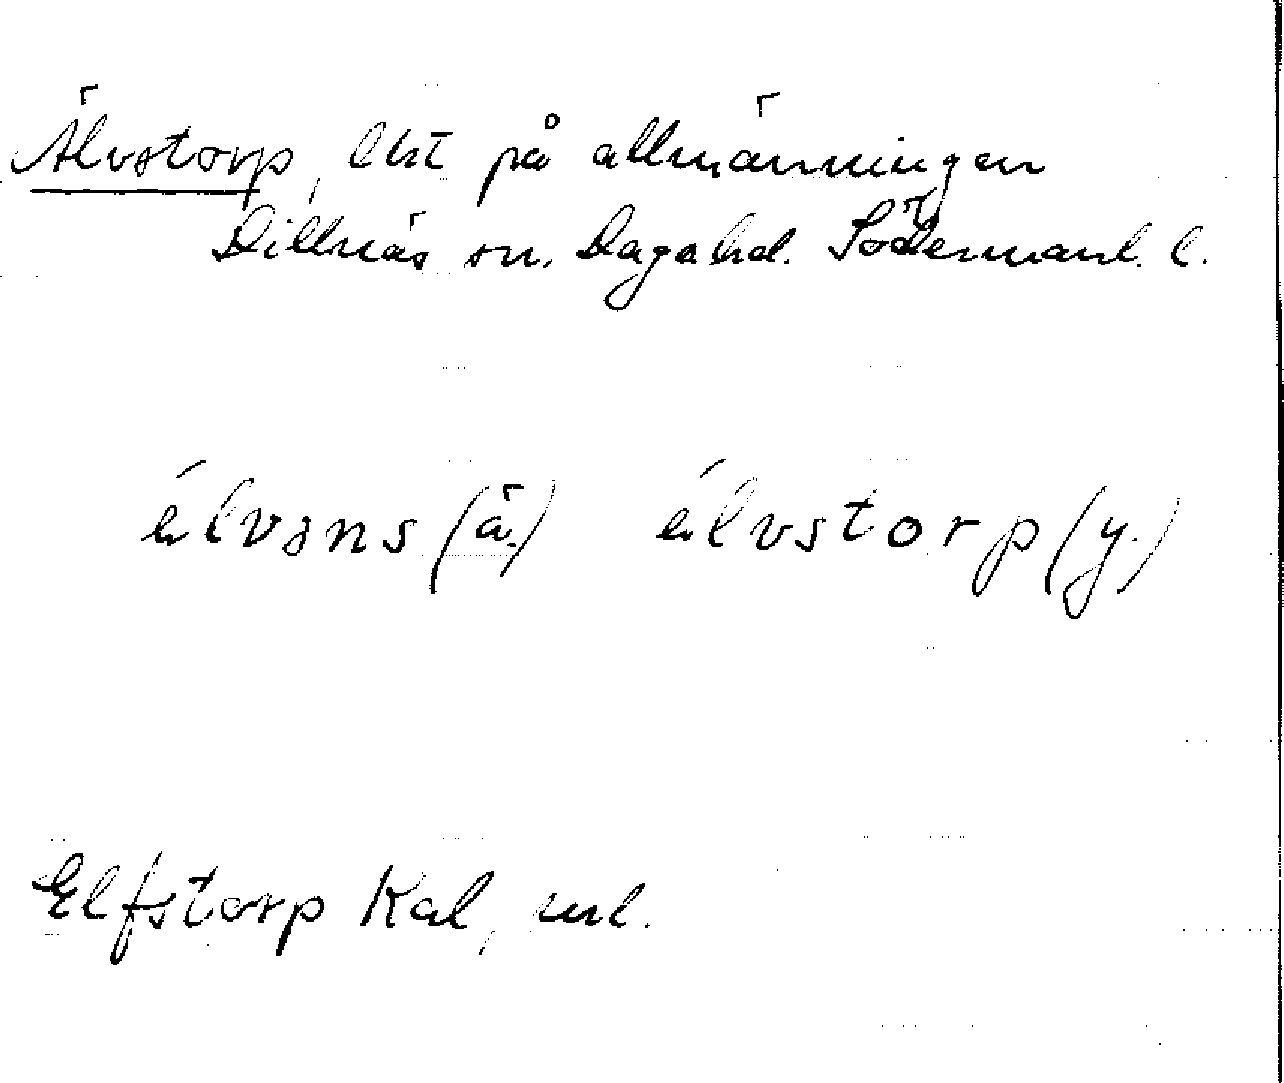 Älvstorp, lht på allmänningen
Dillnäs sn. Daga hd. Södermanl. l.
élvsns (ä.) élvstorp (y.)
Elfstorp Kal,